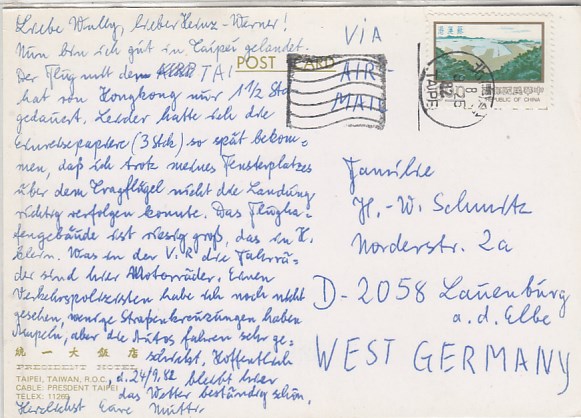 Liebe Wully, lieber Heinz-Werner!
Nun bin ich gut in Taipei gelandet.
Der Flug mit dem TAI
hat von Hongkong nur 1 1/2 Std
gedauert. Leider hatte ich die
Einreisepapiere (3 Stck) so spät bekom-
men, daß ich trotz meines Fensterplatzes
über dem Tragflügel nicht die Landung
richtig verfolgen konnte. Das Flugha-
fengebäude ist riesig groß, das in H.
klein. Was in der V.R. die Fahrrä-
der sind hier Motorräder. Einen
Verkehrspolizisten habe ich noch nicht
gesehen, wenige Straßenkreuzungen haben
Ampeln, aber die Autos fahren sehr ge-
schickt. Hoffentlich
, d. 24/9.82 bleibt hier
das Wetter beständig schön.
Herzlichst Eure Mutti
統一大飯店
PRESIDENT HOTEL
TAIPEI, TAIWAN, R.O.C.
CABLE: PRESDENT TAIPEI
TELEX: 11269
POST CARD
VIA
AIR-
MAIL
TAIPEI
REPUBLIC OF CHINA
中華民國郵票
Familie
H.-W. Schmitz
Norderstr. 2a
D-2058 Lauenburg
a.d. Elbe
WEST GERMANY